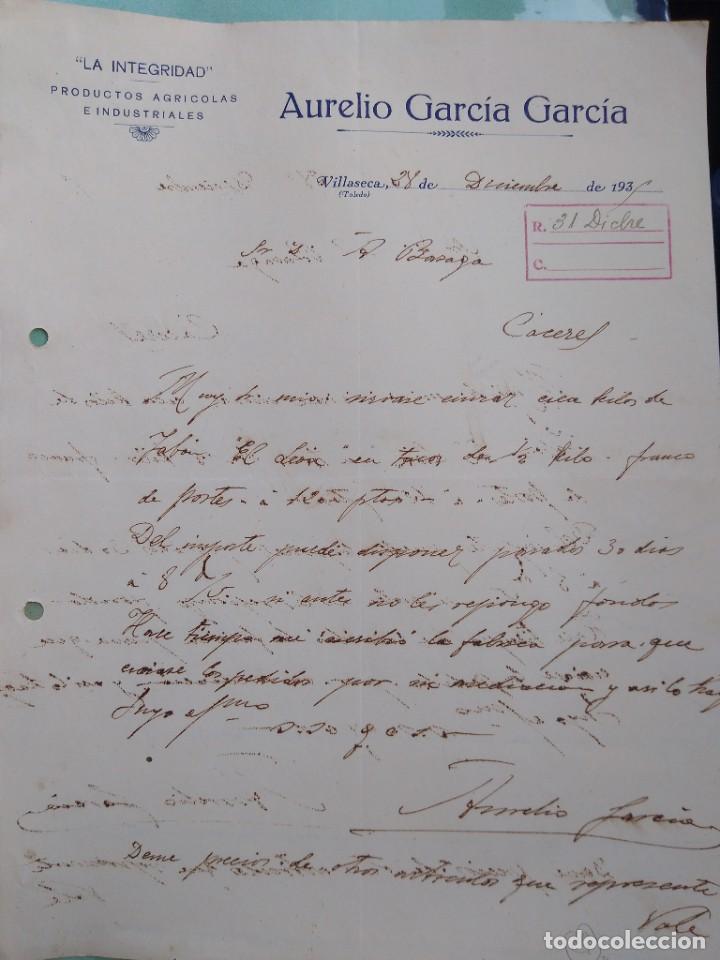 "LA INTEGRIDAD"
PRODUCTOS AGRICOLAS
E INDUSTRIALES
Aurelio García García
Villaseca, 28 de Diciembre de 193
(Toledo)
R. 31 Dicbre
C.
Sr. D. A Basaga
Caceres
Muy Sr mio sirvase enviar cien kilos de
Jabon "El Leon" en tacos de 1/2 kilo franco
de portes à 120 ptas
Del importe puede disponer pasados 30 dias
à 8 si antes no les repongo fondos
Hase tiempo me escribió la fabrica para que
enviase los pedidos por su mediacion y asi lo hago
Suyo affmo
s. s. q. e. s. m
Aurelio Garcia
Deme precios de otros articulos que represente
Vale
todocoleccion
todocoleccion.net